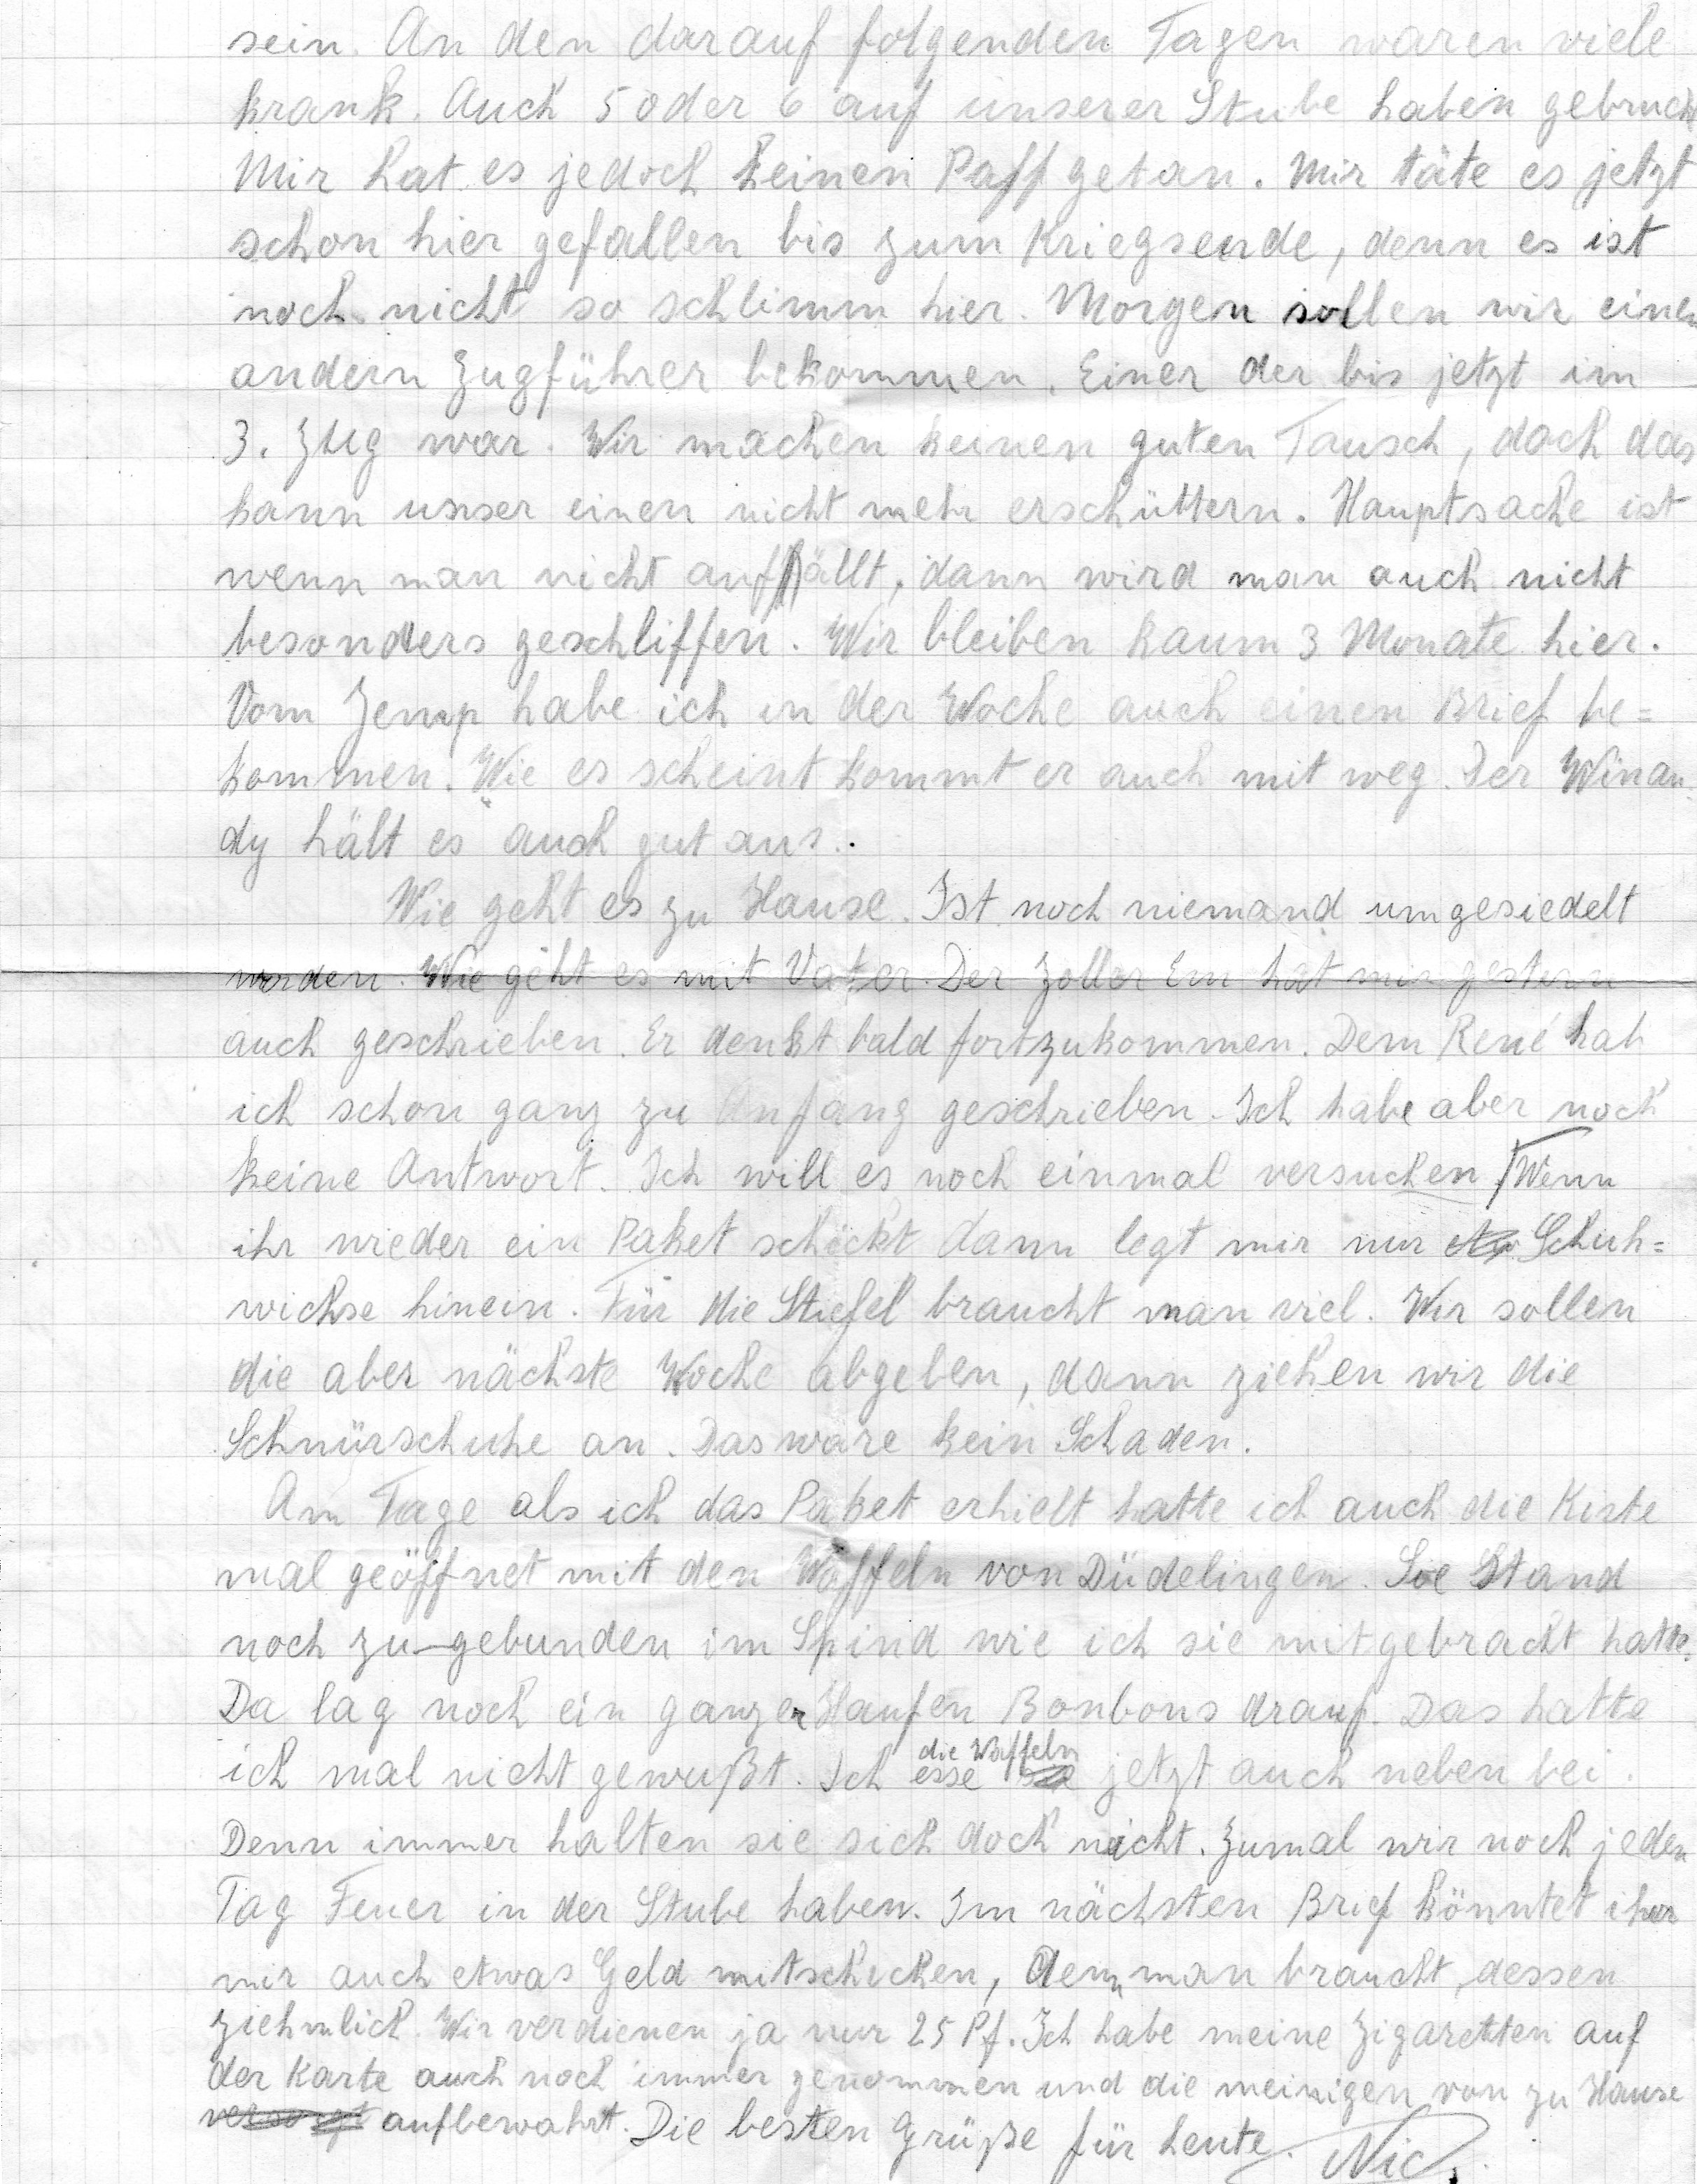 sein. An den darauf folgenden Tagen waren viele
krank. Auch 5 oder 6 auf unserer Stube haben gebruch
Mir hat es jedoch keinen Paff getan. Mir täte es jetzt
schon hier gefallen bis zum Kriegsende, denn es ist
noch nicht so schlimm hier. Morgen sollen wir einen
andern Zugführer bekommen. Einer der bis jetzt im
3. Zug war. Wir machen keinen guten Tausch, doch das
kann unser einen nicht mehr erschüttern. Hauptsache ist
wenn man nicht auffällt, dann wird man auch nicht
besonders geschliffen. Wir bleiben kaum 3 Monate hier.
Vom Jemp habe ich in der Woche auch einen Brief be=
kommen. Wie es scheint kommt er auch mit weg. Der Winan
dy hält es auch gut aus..
Wie geht es zu Hause. Ist noch niemand umgesiedelt
worden. Wie geht es mit Vater. Der Zoller Em hat mir gestern
auch geschrieben. Er denkt bald fortzukommen. Dem René hab
ich schon ganz zu Anfang geschrieben. Ich habe aber noch
keine Antwort. Ich will es noch einmal versuchen. Wenn
ihr wieder ein Paket schickt dann legt mir nur Schuh=
wichse hinein. Für die Stiefel braucht man viel. Wir sollen
die aber nächste Woche abgeben, dann ziehen wir die
Schnürschuhe an. Das wäre kein Schaden.
Am Tage als ich das Paket erhielt hatte ich auch die Kiste
mal geöffnet mit den Waffeln von Düdelingen. Sie Stand
noch zu-gebunden im Spind wie ich sie mitgebracht hatte.
Da lag noch ein ganzer Haufen Bonbons drauf. Das hatte
ich mal nicht gewußt. Ich esse die Waffeln jetzt auch neben bei.
Denn immer halten sie sich doch nicht. Zumal wir noch jeden
Tag Feuer in der Stube haben. Im nächsten Brief könntet ihr
mir auch etwas Geld mitschicken, denn man braucht dessen
ziehmlich. Wir verdienen ja nur 25 Pf. Ich habe meine Zigaretten auf
der Karte auch noch immer genommen und die meinigen von zu Hause
versorgt aufbewahrt. Die besten Grüße für heute. Nic.